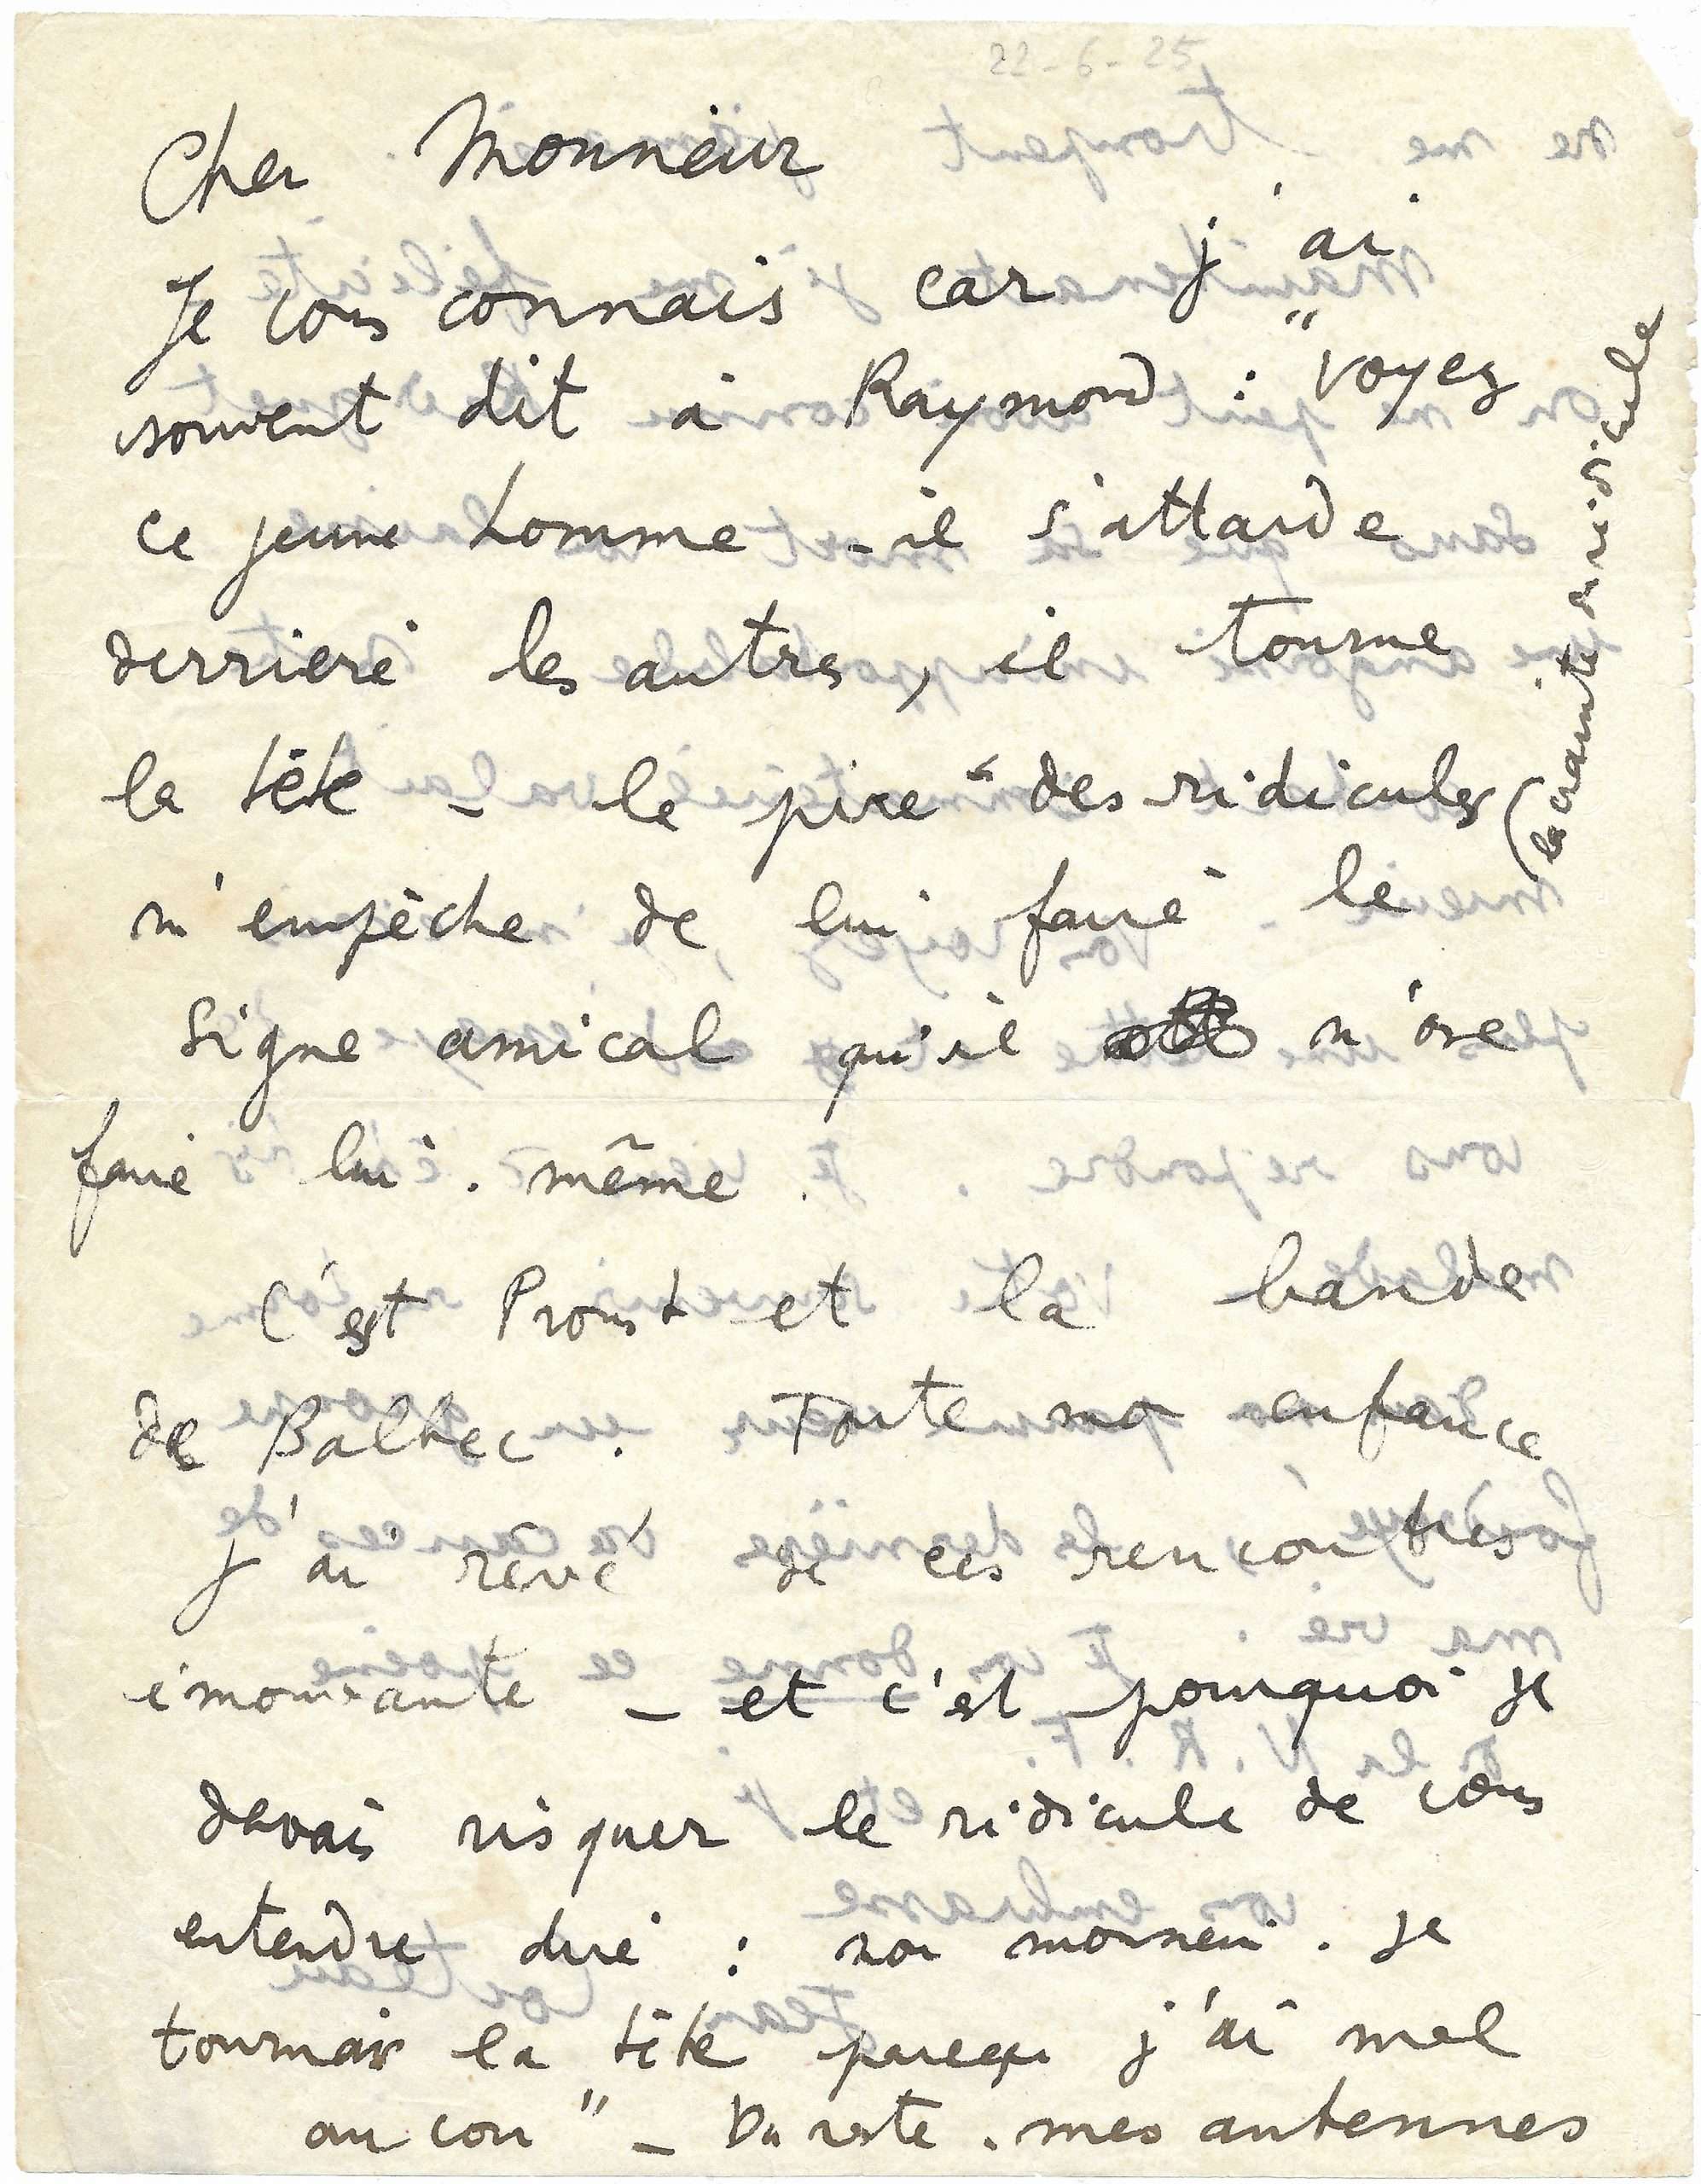 22-6-25
Cher Monsieur
Je vous connais car j'ai
souvent dit à Raymond : "Voyez
ce jeune homme - il s'attarde
derrière les autres, il tourne
la tête - le pire des ridicules
(la crainte du ridicule
m'empêche de lui faire le
signe amical qu'il n'ose
faire lui-même.
C'est Proust et la bande
de Balbec. Toute mon enfance
j'ai rêvé de ces rencontres
émouvante - et c'est pourquoi je
devais risquer le ridicule de vous
entendre dire : non monsieur. Je
tournais la tête parceque j'ai mal
au cou" - Du reste. mes antennes